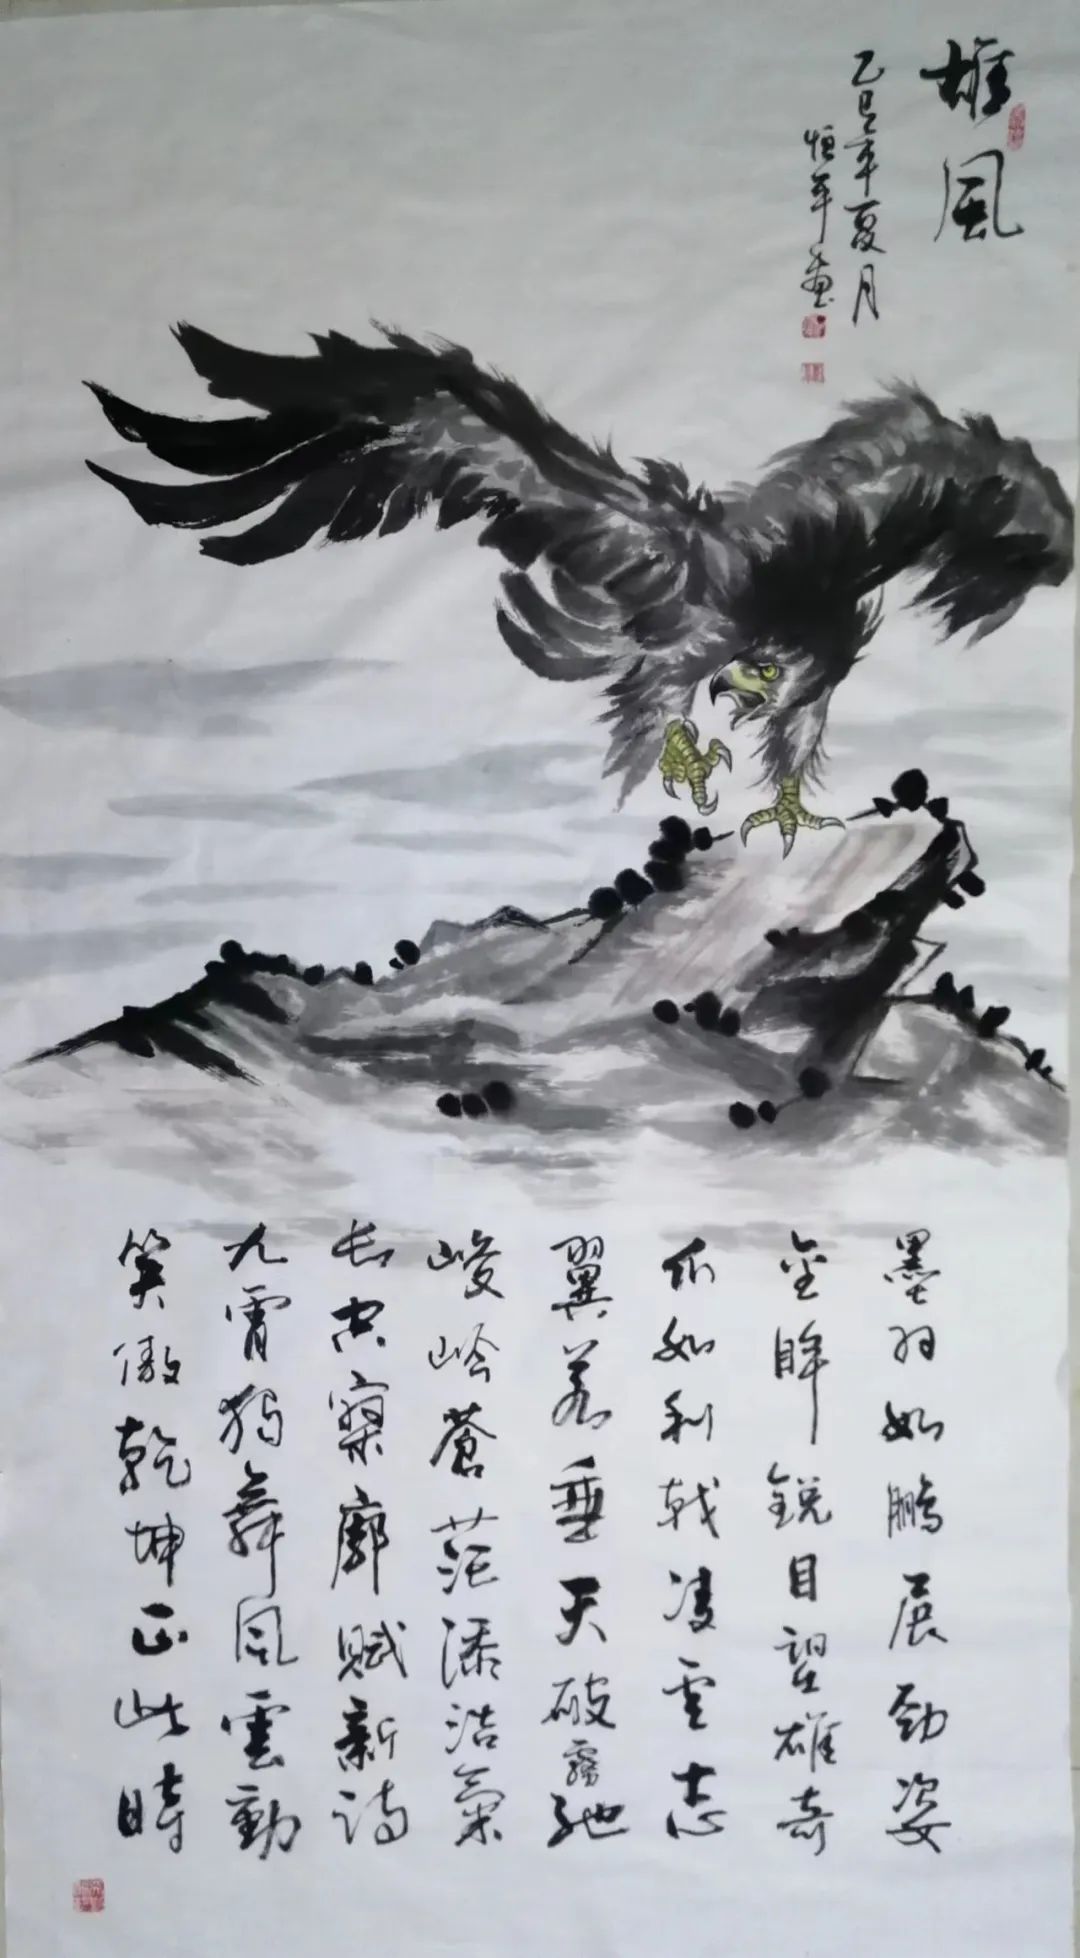 雄風
乙巳年夏月
恒年畫
墨羽如鵬展勁姿
金眸銳目望雄奇
爪如利戟凌雲志
翼若垂天破霧馳
峻嶺蒼茫添浩氣
長空寥廓賦新詩
九霄獨舞風雲動
笑傲乾坤正此時